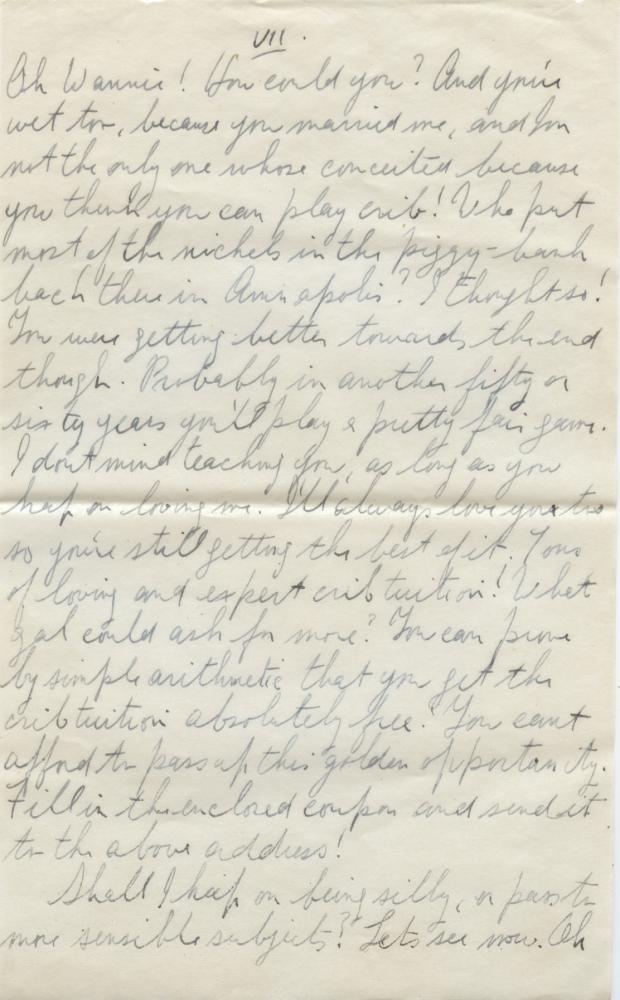 VII.
Oh Wannie! How could you? And you're
wet too, because you married me, and I'm
not the only one whose conceited because
you think you can play crib! Who put
most of the nickels in the piggy-bank
back there in Annapolis? I thought so!
You were getting better towards the end
though. Probably in another fifty or
sixty years you'll play a pretty fair game.
I don't mind teaching you, as long as you
keep on loving me. I'll always love you too
so you're still getting the best of it. Tons
of loving and expert crib tuition! What
gal could ask for more? You can prove
by simple arithmetic that you get the
crib tuition absolutely free. You can't
afford to pass up this golden opportunity.
Fill in the enclosed coupon and send it
to the above address!
Shall I keep on being silly, or pass to
more sensible subjects? Lets see now. Oh